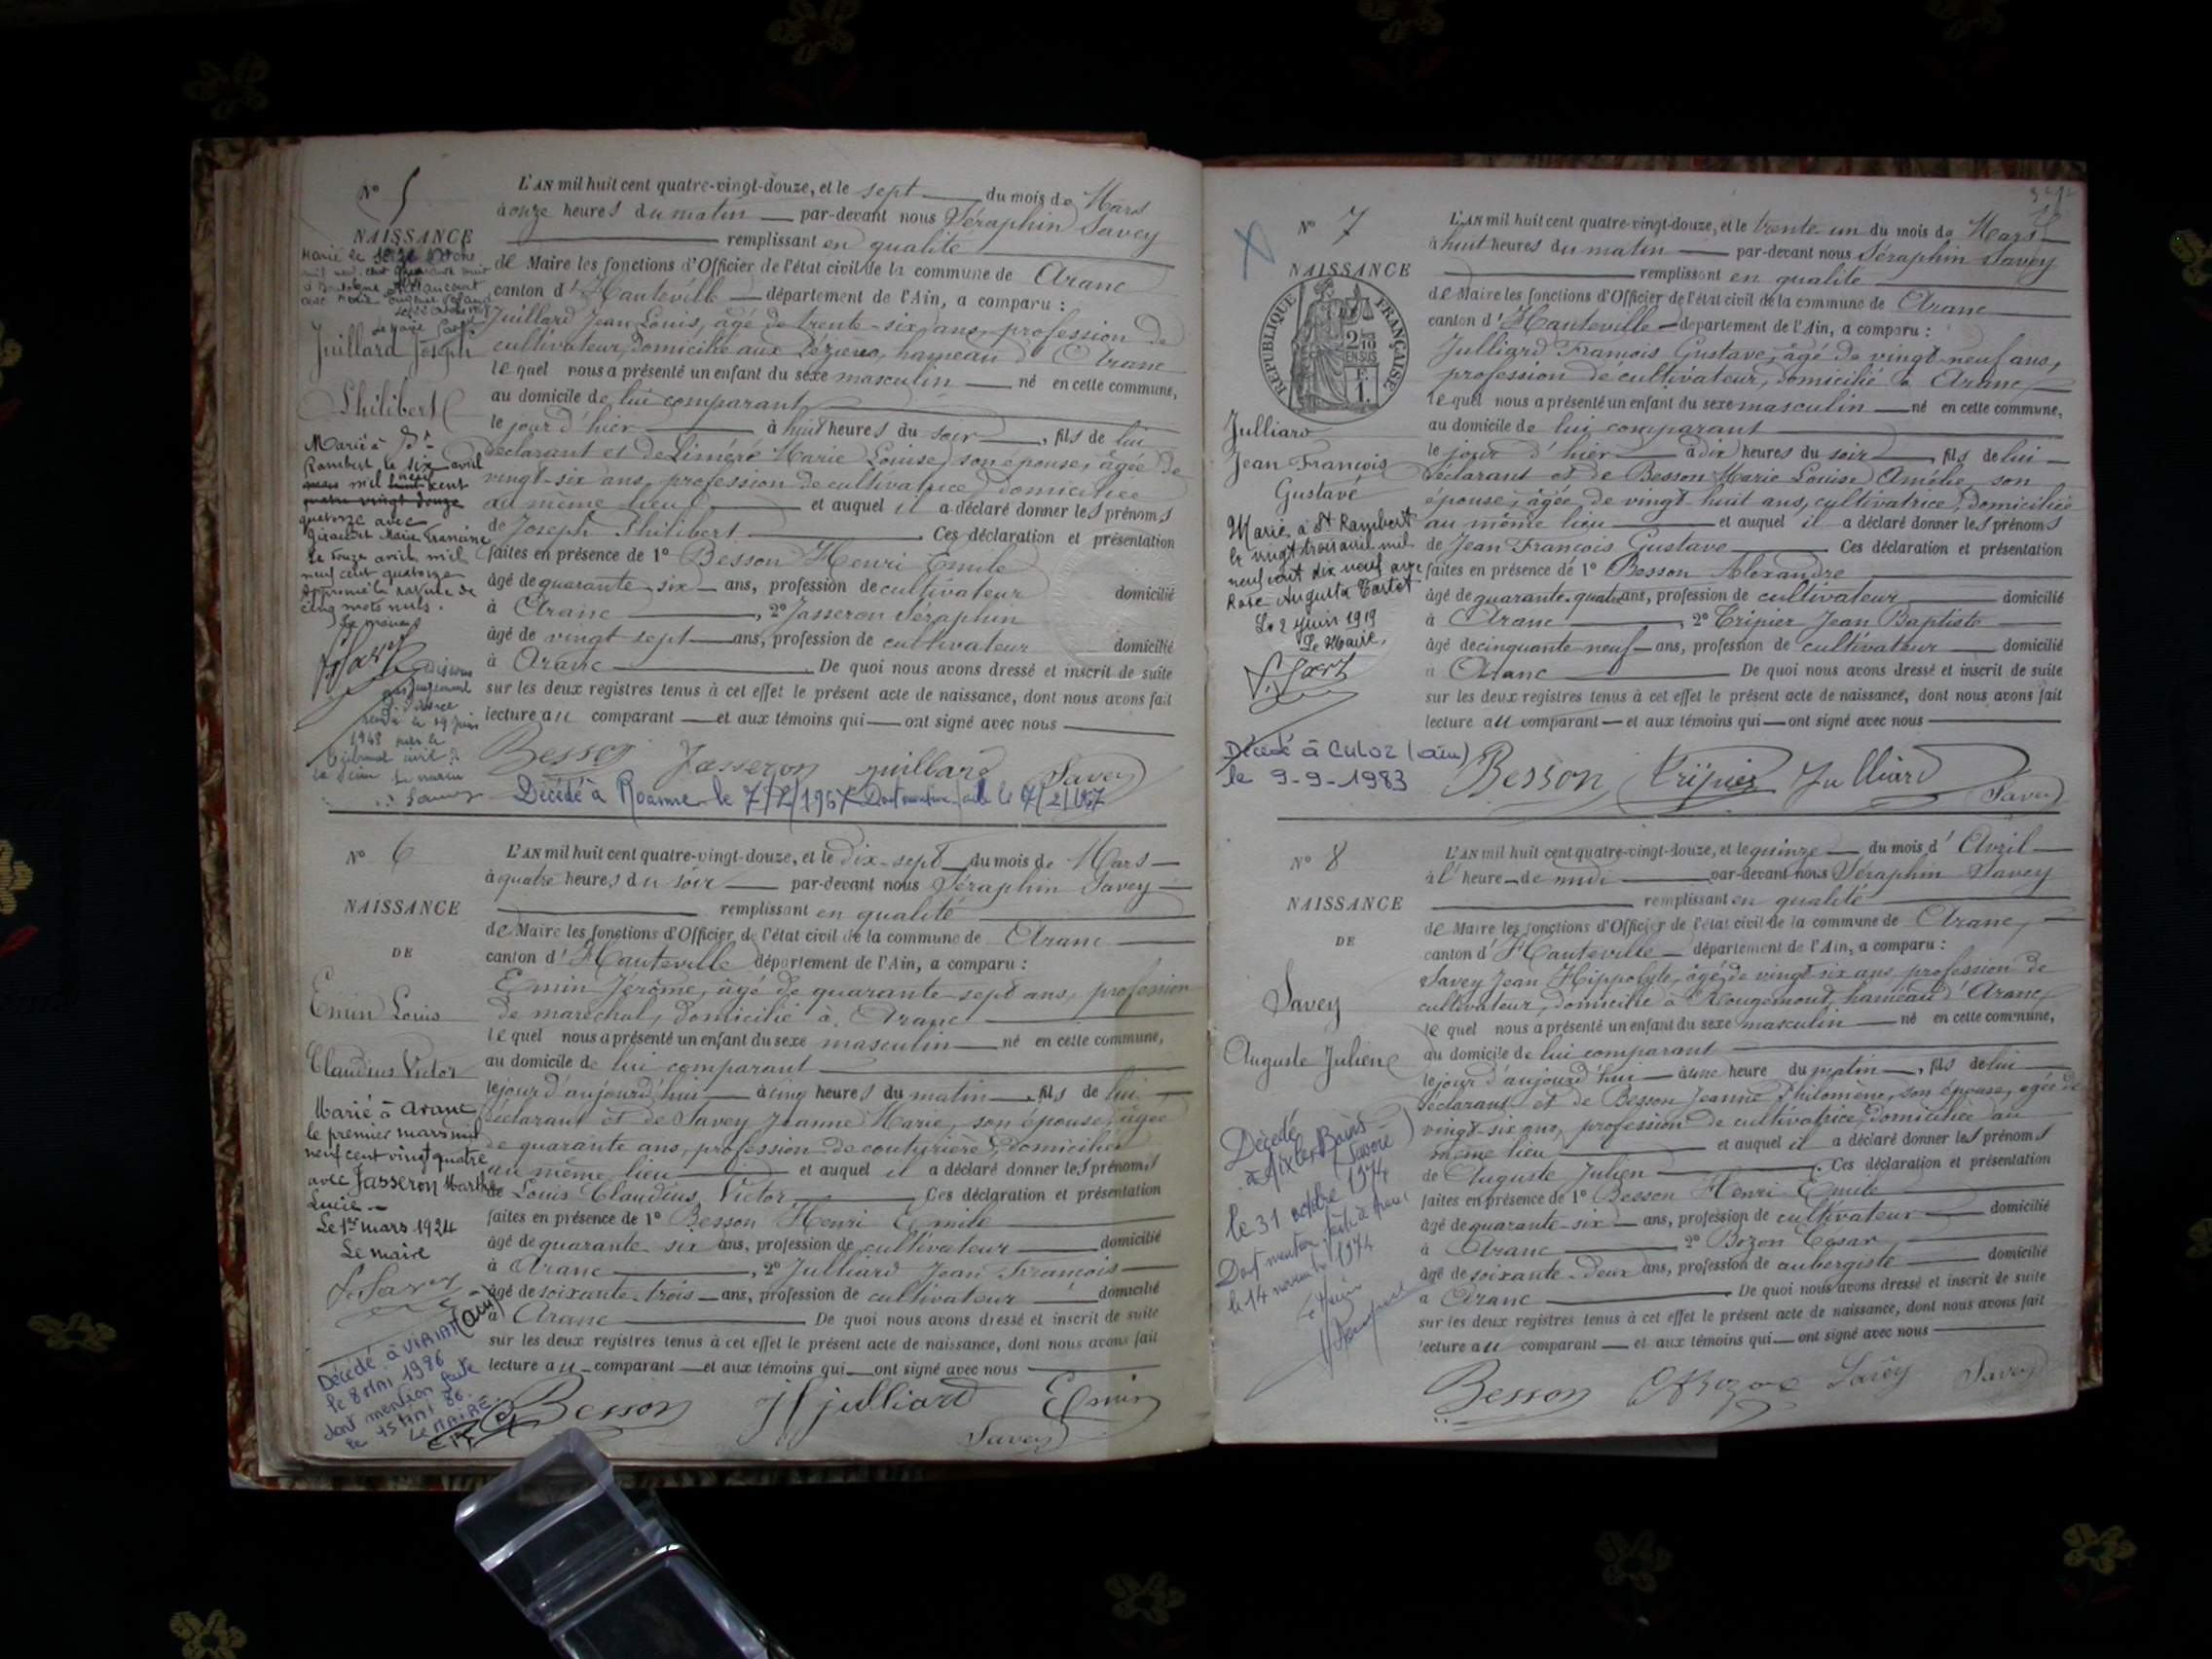 N° 5
NAISSANCE
Juillard Joseph
Philibert
Marié à St
Rambert le six avril
mil neuf cent
quatorze avec
Marie Francine
Le douze avril mil
neuf cent quatorze
Approuvé la rature de
cinq mots nuls.
Le maire
L'AN mil huit cent quatre-vingt-douze, et le sept du mois de Mars
à onze heures du matin par-devant nous Séraphin Savey
remplissant en qualité
de Maire les fonctions d'Officier de l'état civil de la commune de Aranc
canton d'Hauteville département de l'Ain, a comparu :
Juillard Jean Louis, âgé de trente-six ans, profession de
cultivateur, domicilié aux Pézières, hameau d'Aranc
lequel nous a présenté un enfant du sexe masculin né en cette commune,
au domicile de lui comparant
le jour d'hier à huit heures du soir, fils de lui
déclarant et de Liméré Marie Louise, son épouse, âgée de
vingt-six ans, profession de cultivatrice, domiciliée
au même lieu et auquel il a déclaré donner les prénoms
de Joseph Philibert Ces déclaration et présentation
faites en présence de 1° Besson Henri Emile
âgé de quarante-six ans, profession de cultivateur domicilié
à Aranc, 2° Jasseron Séraphin
âgé de vingt sept ans, profession de cultivateur domicilié
à Aranc. De quoi nous avons dressé et inscrit de suite
sur les deux registres tenus à cet effet le présent acte de naissance, dont nous avons fait
lecture au comparant et aux témoins qui ont signé avec nous
Besson Jasseron Juillard Savey
Décédé à Roanne le 7/2/1967
N° 6
NAISSANCE
DE
Emin Louis
Claudius Victor
Marié à Aranc
le premier mars mil
neuf cent vingt quatre
avec Jasseron Marthe
Lucie
Le 1er mars 1924
Le maire
Décédé à VIRIAT (Ain)
le 8 MAI 1986
dont mention faite
le 15 MAI 86.
LE MAIRE
L'AN mil huit cent quatre-vingt-douze, et le dix-sept du mois de Mars
à quatre heures du soir par-devant nous Séraphin Savey
remplissant en qualité
de Maire les fonctions d'Officier de l'état civil de la commune de Aranc
canton d'Hauteville département de l'Ain, a comparu :
Emin Jérôme, âgé de quarante-sept ans, profession
de maréchal, domicilié à Aranc
lequel nous a présenté un enfant du sexe masculin né en cette commune,
au domicile de lui comparant
le jour d'aujourd'hui à cinq heures du matin, fils de lui
déclarant et de Savey Jeanne Marie, son épouse, âgée
de quarante ans, profession de couturière, domiciliée
au même lieu et auquel il a déclaré donner les prénoms
de Louis Claudius Victor Ces déclaration et présentation
faites en présence de 1° Besson Henri Emile
âgé de quarante-six ans, profession de cultivateur domicilié
à Aranc, 2° Julliard Jean François
âgé de soixante-trois ans, profession de cultivateur domicilié
à Aranc De quoi nous avons dressé et inscrit de suite
sur les deux registres tenus à cet effet le présent acte de naissance, dont nous avons fait
lecture au comparant et aux témoins qui ont signé avec nous
Besson Julliard Emin
Savey
N° 7
NAISSANCE
RÉPUBLIQUE FRANÇAISE
Julliard
Jean François
Gustave
Marié à St Rambert
le vingt trois avril mil
neuf cent dix neuf avec
Rose Augusta Tartet
Le 2 juin 1919
Le Maire,
Décédé à CULOZ (Ain)
le 9-9-1983
L'AN mil huit cent quatre-vingt-douze, et le trente un du mois de Mars
à huit heures du matin par-devant nous Séraphin Savey
remplissant en qualité
de Maire les fonctions d'Officier de l'état civil de la commune de Aranc
canton d'Hauteville département de l'Ain, a comparu :
Julliard François Gustave, âgé de vingt-neuf ans,
profession de cultivateur, domicilié à Aranc
lequel nous a présenté un enfant du sexe masculin né en cette commune,
au domicile de lui comparant
le jour d'hier à dix heures du soir, fils de lui
déclarant et de Besson Marie Louise Amélie, son
épouse, âgée de vingt huit ans, cultivatrice, domiciliée
au même lieu et auquel il a déclaré donner les prénoms
de Jean François Gustave Ces déclaration et présentation
faites en présence de 1° Besson Alexandre
âgé de quarante-quatre ans, profession de cultivateur domicilié
à Aranc, 2° Tripier Jean Baptiste
âgé de cinquante-neuf ans, profession de cultivateur domicilié
à Aranc De quoi nous avons dressé et inscrit de suite
sur les deux registres tenus à cet effet le présent acte de naissance, dont nous avons fait
lecture au comparant et aux témoins qui ont signé avec nous
Besson Tripier Julliard
Savey
N° 8
NAISSANCE
DE
Savey
Auguste Julien
Décédé
à Aix les Bains
(Savoie)
le 31 octobre 1974
Dont mention faite à Aranc
le 14 novembre 1974
L'AN mil huit cent quatre-vingt-douze, et le quinze du mois d'Avril
à l'heure de midi par-devant nous Séraphin Savey
remplissant en qualité
de Maire les fonctions d'Officier de l'état civil de la commune de Aranc,
canton d'Hauteville département de l'Ain, a comparu :
Savey Jean Hippolyte, âgé de vingt-six ans, profession de
cultivateur, domicilié à Rougemont, hameau d'Aranc
lequel nous a présenté un enfant du sexe masculin né en cette commune,
au domicile de lui comparant
le jour d'aujourd'hui à une heure du matin, fils de lui
déclarant et de Besson Jeanne Philomène, son épouse, agée de
vingt-six ans, profession de cultivatrice, domiciliée au
même lieu et auquel il a déclaré donner les prénoms
de Auguste Julien. Ces déclaration et présentation
faites en présence de 1° Besson Henri Emile
âgé de quarante-six ans, profession de cultivateur domicilié
à Aranc 2° Bozon César
âgé de soixante-deux ans, profession de aubergiste domicilié
à Aranc. De quoi nous avons dressé et inscrit de suite
sur les deux registres tenus à cet effet le présent acte de naissance, dont nous avons fait
lecture au comparant et aux témoins qui ont signé avec nous
Besson Bozon Savey Savey